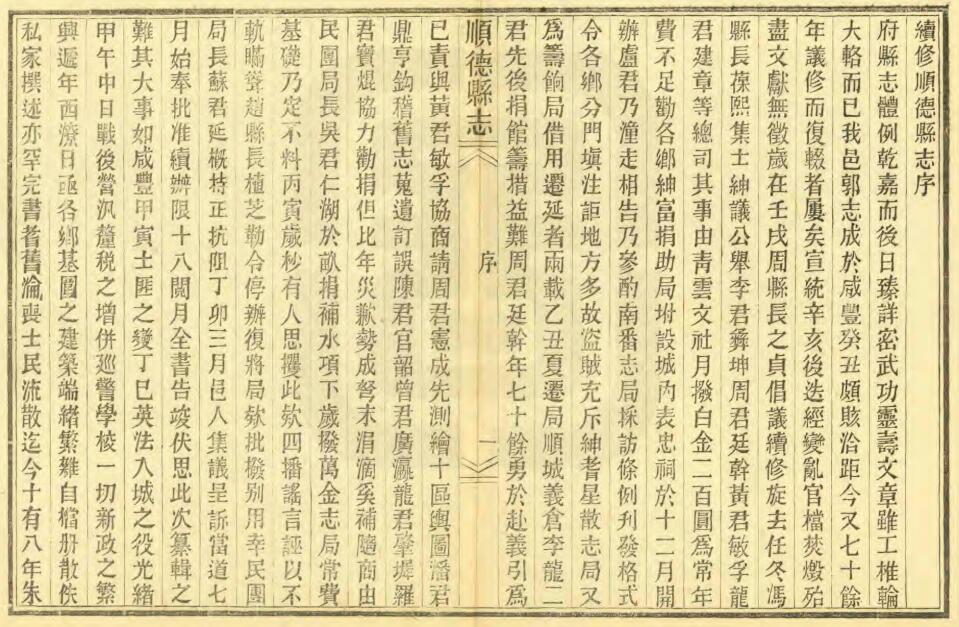 續修順德縣志序
府縣志體例乾嘉而後日臻詳密武功靈壽文章雖工椎輪
大輅而已我邑郭志成於咸豐癸丑頗賅洽距今又七十餘
年議修而復輟者屢矣宣統辛亥後迭經變亂官檔焚燬殆
盡文獻無徵歲在壬戌周縣長之貞倡議續修旋去任冬馮
縣長葆熙集士紳議公舉李君彝坤周君廷幹黃君敏孚龍
君建章等總司其事由青雲文社月撥白金二百圓爲常年
費不足勸各鄉紳富捐助局坿設城內表忠祠於十二月開
辦盧君乃潼走相告乃參酌南番志局採訪條例刋發格式
令各鄉分門塡注詎地方多故盜賊充斥紳耆星散志局又
爲籌餉局借用遷延者兩載乙丑夏遷局順城義倉李龍二
君先後捐館籌措益難周君廷幹年七十餘勇於赴義引爲
順德縣志
序
一
已責與黃君敏孚協商請周君憲成先測繪十區輿圖潘君
鼎亨鈎稽舊志蒐遺訂誤陳君官韶曾君廣瀛龍君肇墀羅
君寶焜協力勸捐但比年災歉勢成弩末涓滴奚補隨商由
民團局長吳君仁湖於畝捐補水項下歲撥萬金志局常費
基礎乃定不料丙寅歲杪有人思攫此欵四播謠言誣以不
軌瞞聳趙縣長植芝勒令停辦復將局欵批撥别用幸民團
局長蘇君延概持正抗阻丁卯三月邑人集議呈訴當道七
月始奉批准續辦限十八閱月全書告竣伏思此次纂輯之
難其大事如咸豐甲寅土匪之變丁巳英法入城之役光緒
甲午中日戰後營汛釐稅之增併巡警學校一切新政之繁
興遞年西潦日亟各鄉基圍之建築端緒繁雜自檔册散佚
私家撰述亦罕完書耆舊淪喪士民流散迄今十有八年朱